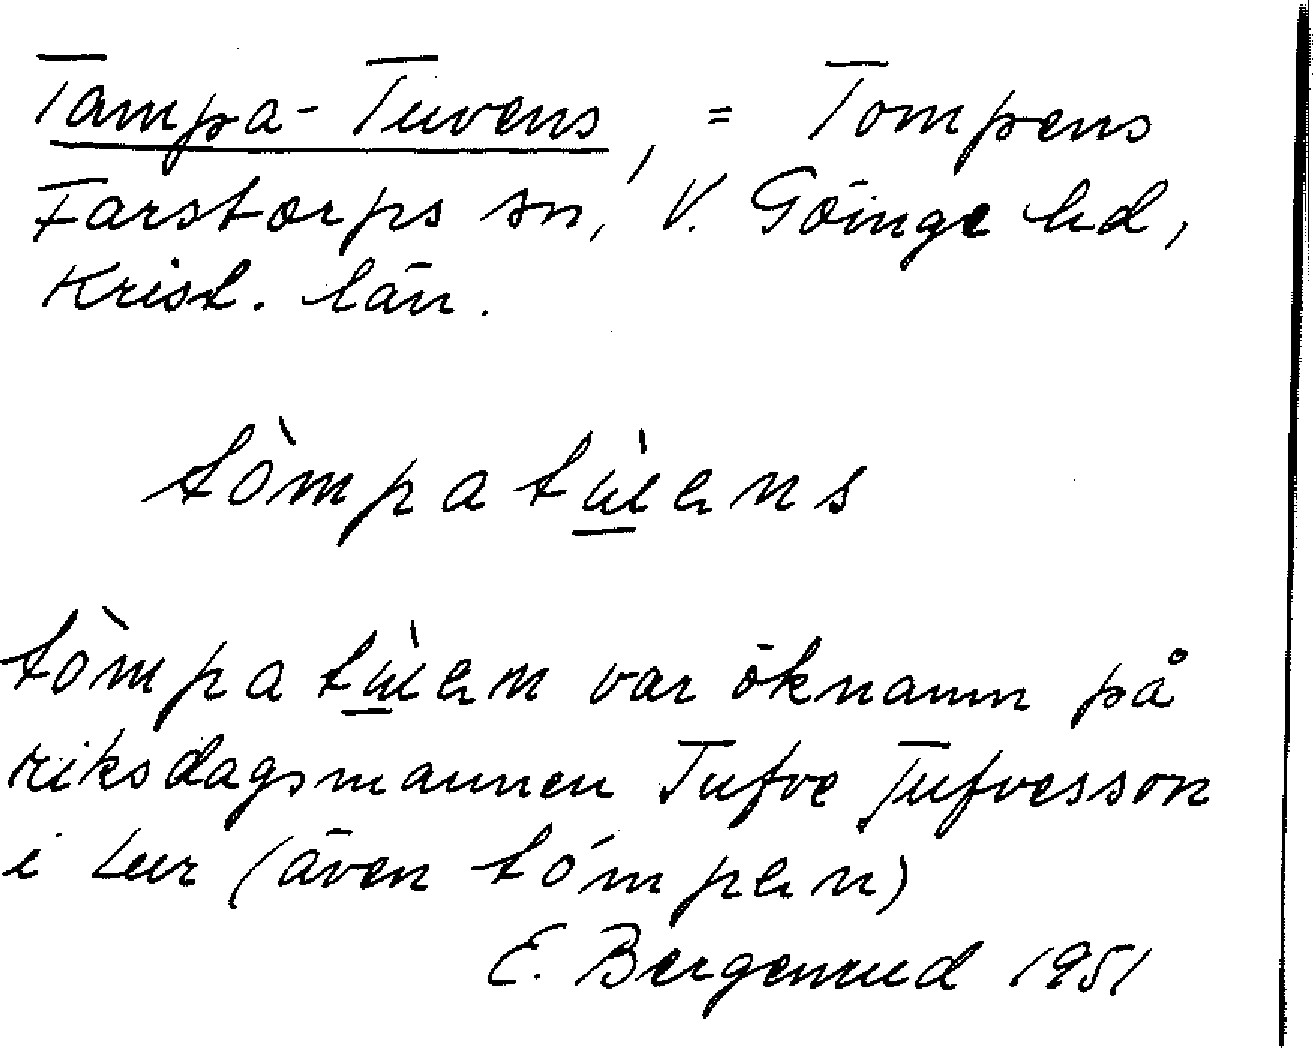 Tampa-Tuvens, = Tompens
Farstorps sn, V. Göinge hd,
Krist. län.
tòmpatù̲ens
tòmpatù̲en var öknamn på
riksdagsmannen Tufve Tufvesson
i Lur (även tómpen)
E. Bergenrud 1951